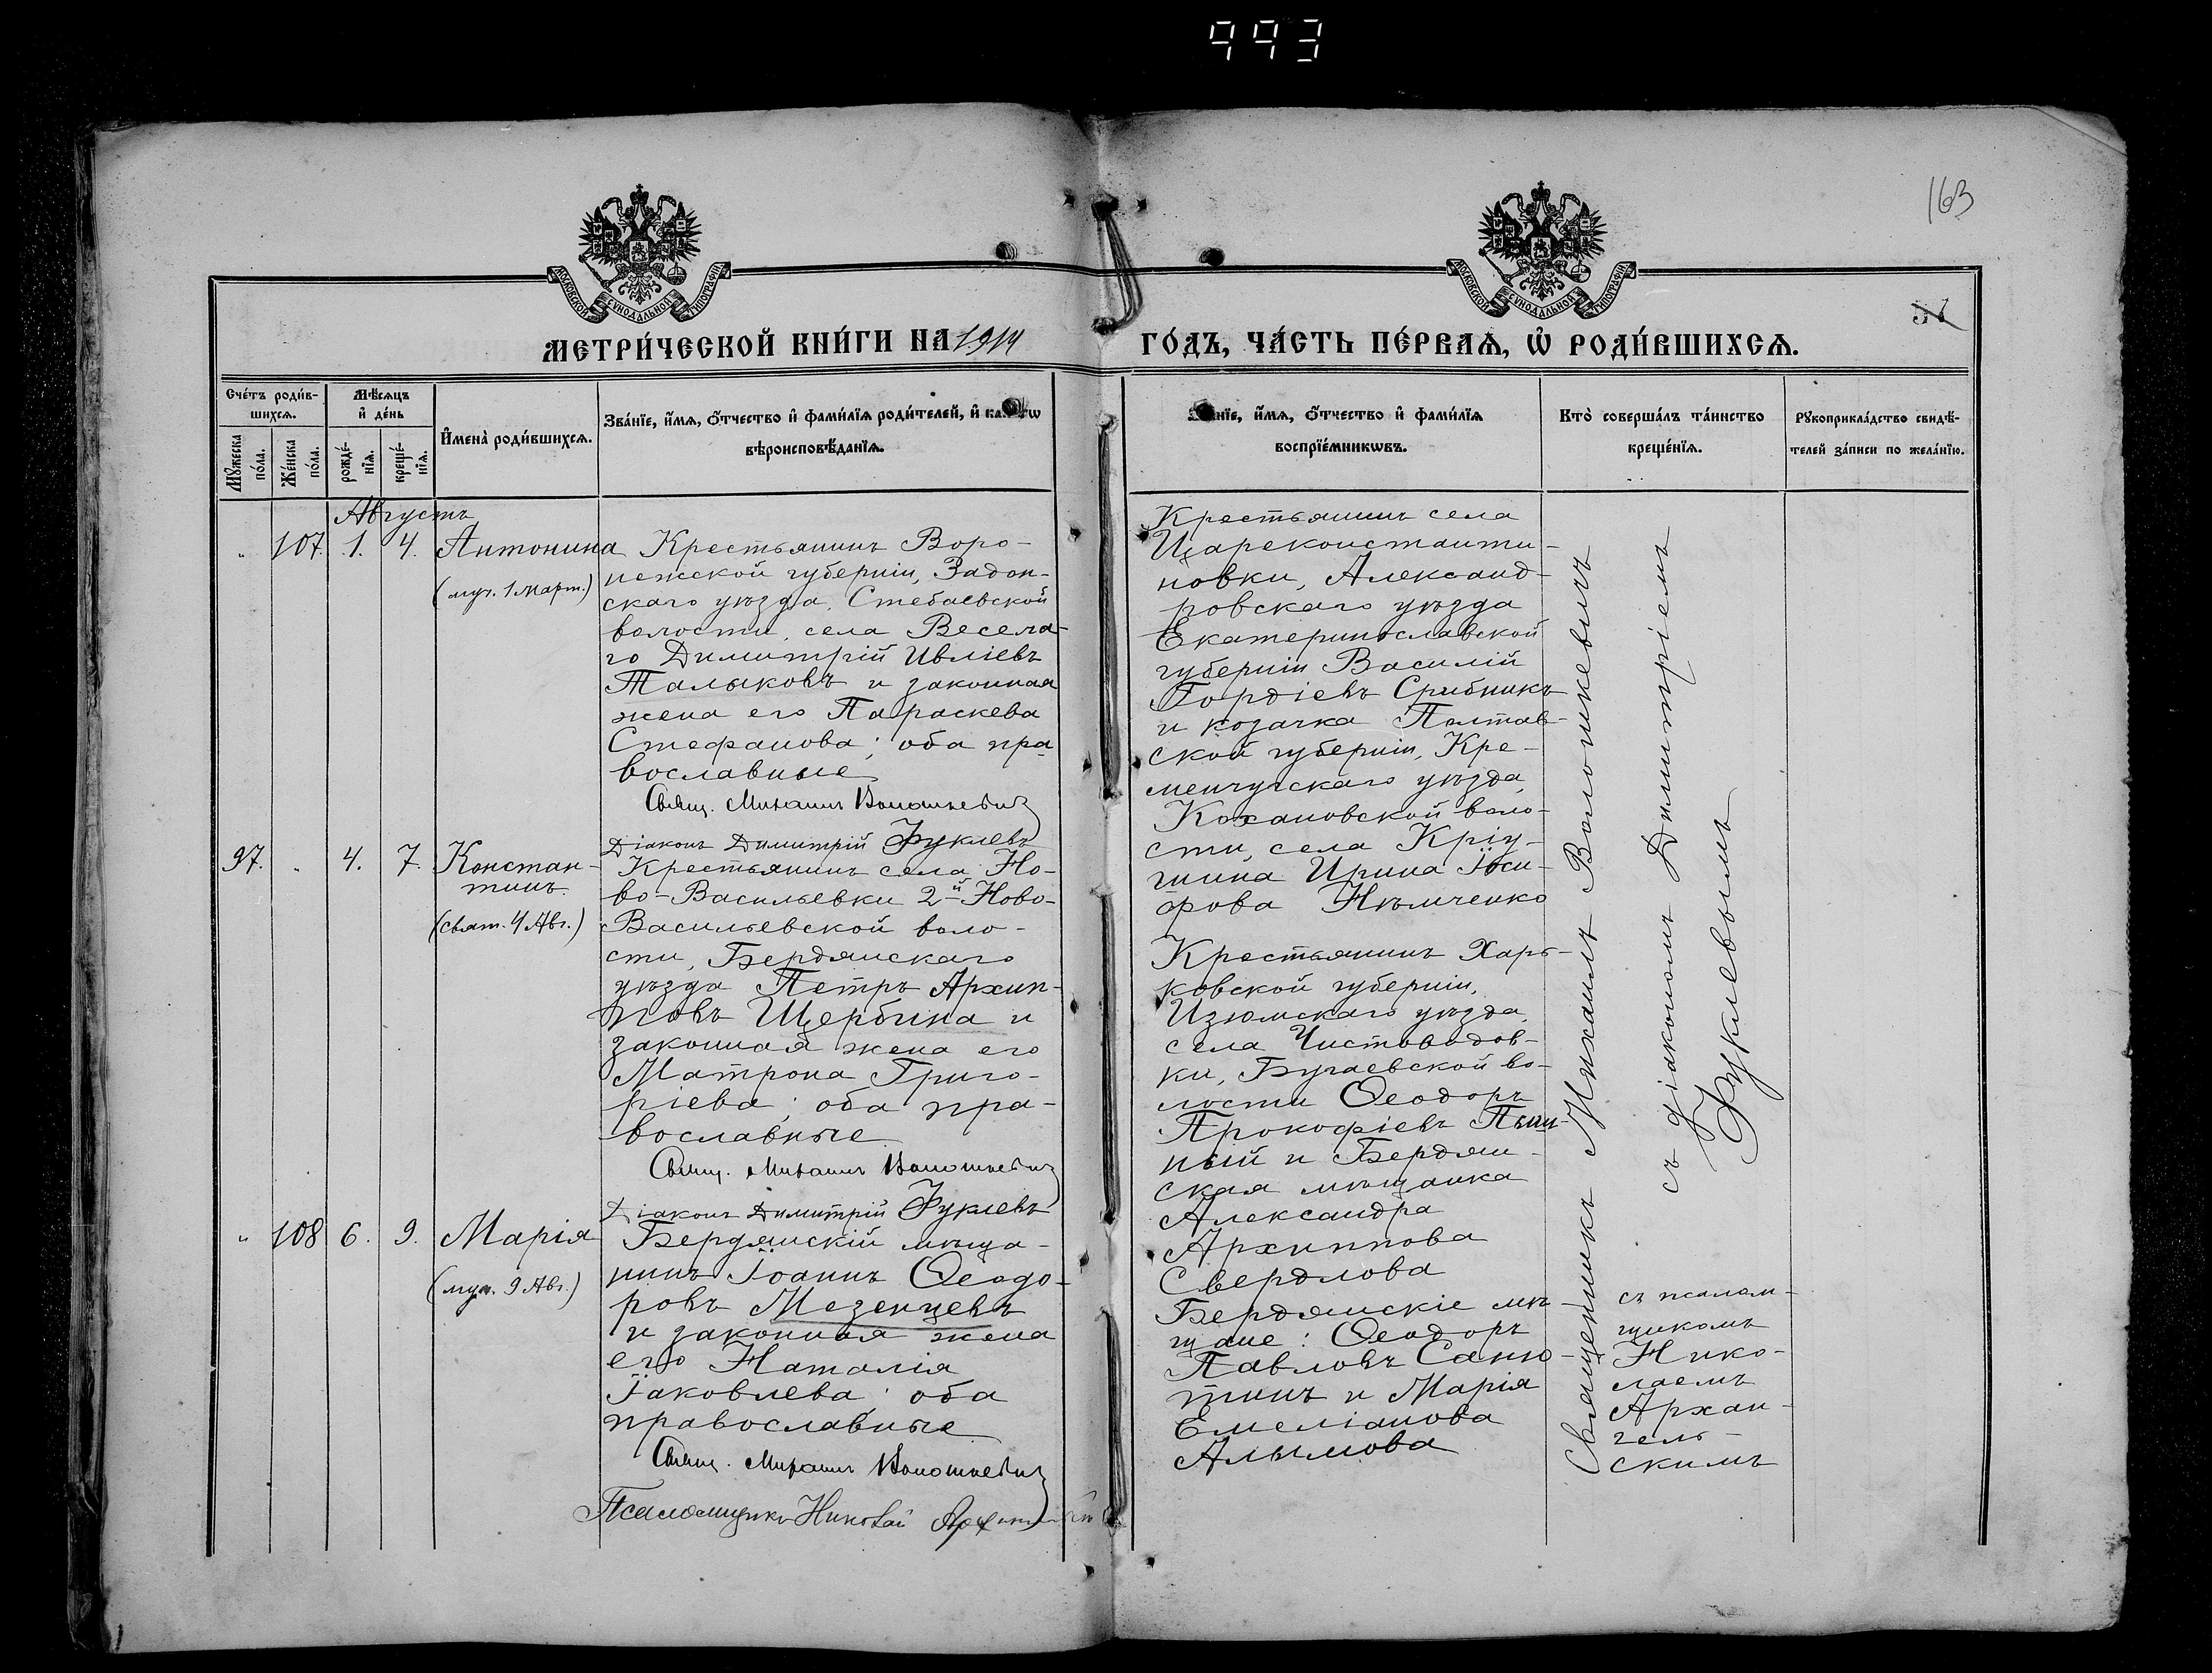 993
163
51
МОСКОВСКОЙ СѴНОДАЛЬНОЙ ТИПОГРАФІИ
МОСКОВСКОЙ СѴНОДАЛЬНОЙ ТИПОГРАФІИ
МЕТРИ́ЧЕСКОЙ КНИ́ГИ НА 1914
ГО́ДЪ, ЧА́СТЬ ПЕ́РВАѦ, Ѡ҆ РОДИ́ВШИХСѦ.
Сче́тъ роди́в-
шихсѧ.
Мꙋ́жеска
по́ла.
Же́нска
по́ла.
Мѣ́сѧцъ
и҆ де́нь
рожде́-
нїѧ.
креще́-
нїѧ.
И҆мена̀ роди́вшихсѧ.
Зва́нїе, и҆́мѧ, ѻ҆́тчество и҆ фами́лїѧ роди́телей, и҆ как
вѣроисповѣ́данїѧ.
и҆́мѧ, ѻ҆́тчество и҆ фами́лїѧ
воспрїе́мникѡвъ.
Кто̀ соверша́лъ та́инство
креще́нїѧ.
Рꙋкоприкла́дство свидѣ́-
телей за́писи по жела́нїю.
Августъ
" 107. 1. 4. Антонина
(муч. 1 Март.)
Крестьянинъ Воро-
нежской губерніи, Задон-
скаго уѣзда, Стебаевской
волости, села Весела-
го Димитрій Ивліевъ
Талыковъ и законная
жена его Параскева
Стефанова; оба пра-
вославные
Свящ. Михаилъ Волошкевичъ
Діаконъ Димитрій Фуклевъ
Крестьянинъ села
Цареконстанти-
новки, Александ-
ровскаго уѣзда
Екатеринославской
губерніи Василій
Гордіевъ Срибникъ
и козачка Полтав-
ской губерніи, Кре-
менчугскаго уѣзда,
Кохановской воло-
сти, села Кріу-
шина Ирина Іоси-
фова Нѣмченко
97. " 4. 7. Констан-
тинъ
(свят. 4 Авг.)
Крестьянинъ села Но-
во-Васильевки 2-й Ново-
Васильевской воло-
сти, Бердянскаго
уѣзда Петръ Архип-
повъ Щербина и
законная жена его
Матрона Григо-
ріева; оба пра-
вославные
Свящ. Михаилъ Волошкевичъ
Діаконъ Димитрій Фуклевъ
Крестьянинъ Харь-
ковской губерніи,
Изюмскаго уѣзда,
села Чистоводов-
ки, Бугаевской во-
лости Ѳеодоръ
Прокофіевъ
ный и Бердян-
ская мѣщанка
Александра
Архиппова
Свердлова
" 108 6. 9. Марія
(муч. 9 Авг.)
Бердянскій мѣща-
нинъ Іоаннъ Ѳеодо-
ровъ Мезенцевъ
и законная жена
его Наталія
Іаковлева; оба
православные
Свящ. Михаилъ Волошкевичъ
Псаломщикъ Николай Архангельскій
Бердянскіе мѣ-
щане: Ѳеодоръ
Павловъ Саню-
тинъ и Марія
Емеліанова
Алымова
Священникъ Михаилъ Волошкевичъ
съ діакономъ Димитріемъ
Фуклевымъ
съ псалом-
щикомъ
Нико-
лаемъ
Архан-
гель-
скимъ